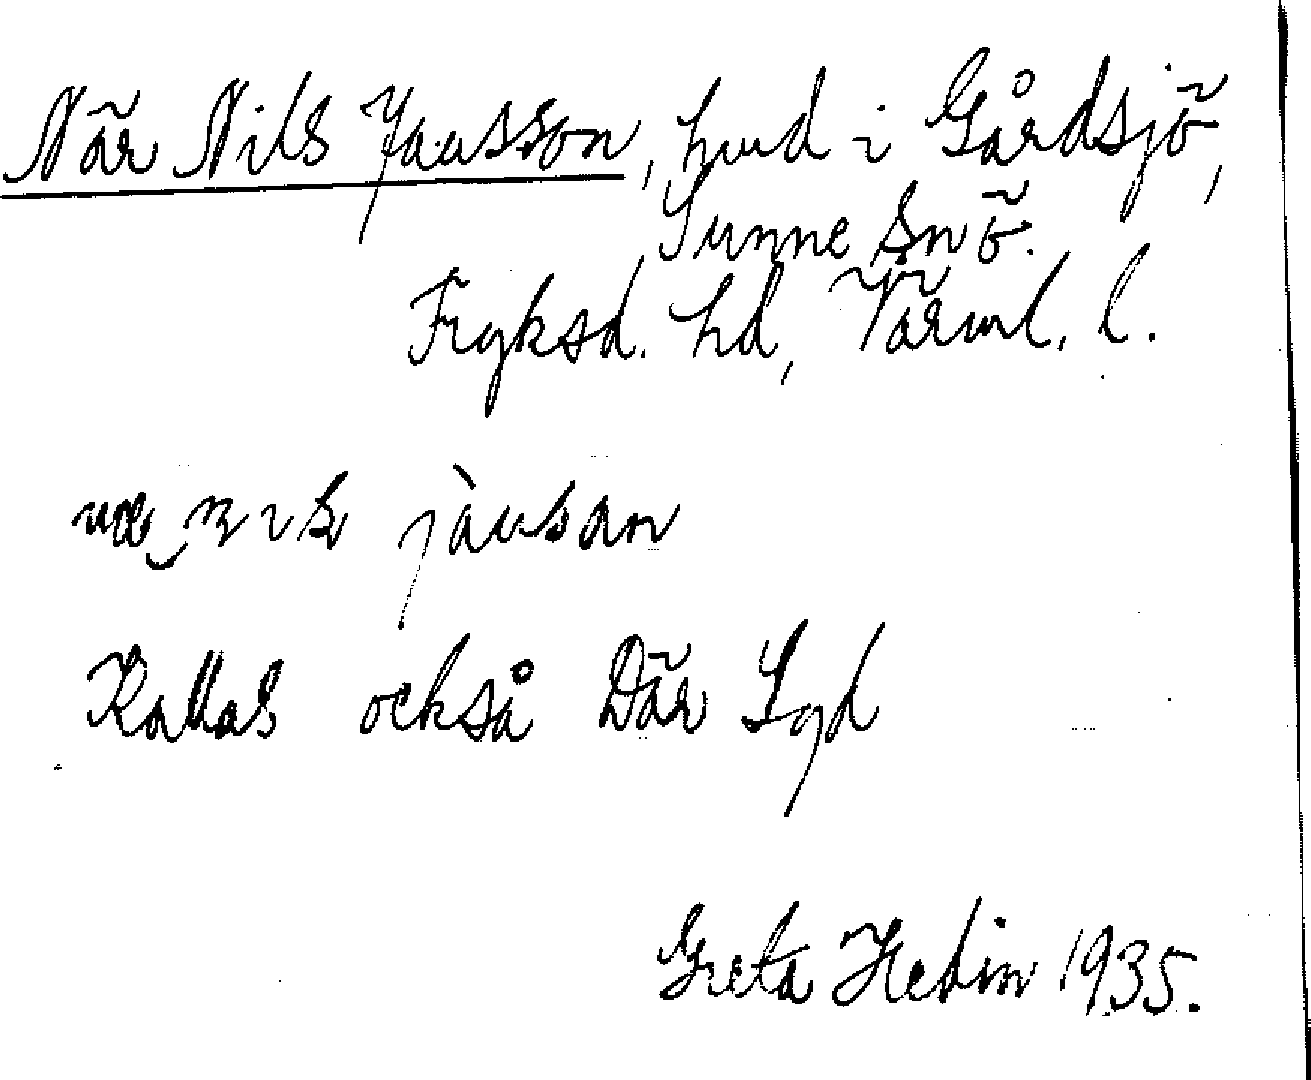 När Nils Jansson, hmd i Gårdsjö,
Sunne sn ö.
Fryksd. hd, Värml. l.
jàusan
Kallas också Där Syd
Greta Hedin 1935.